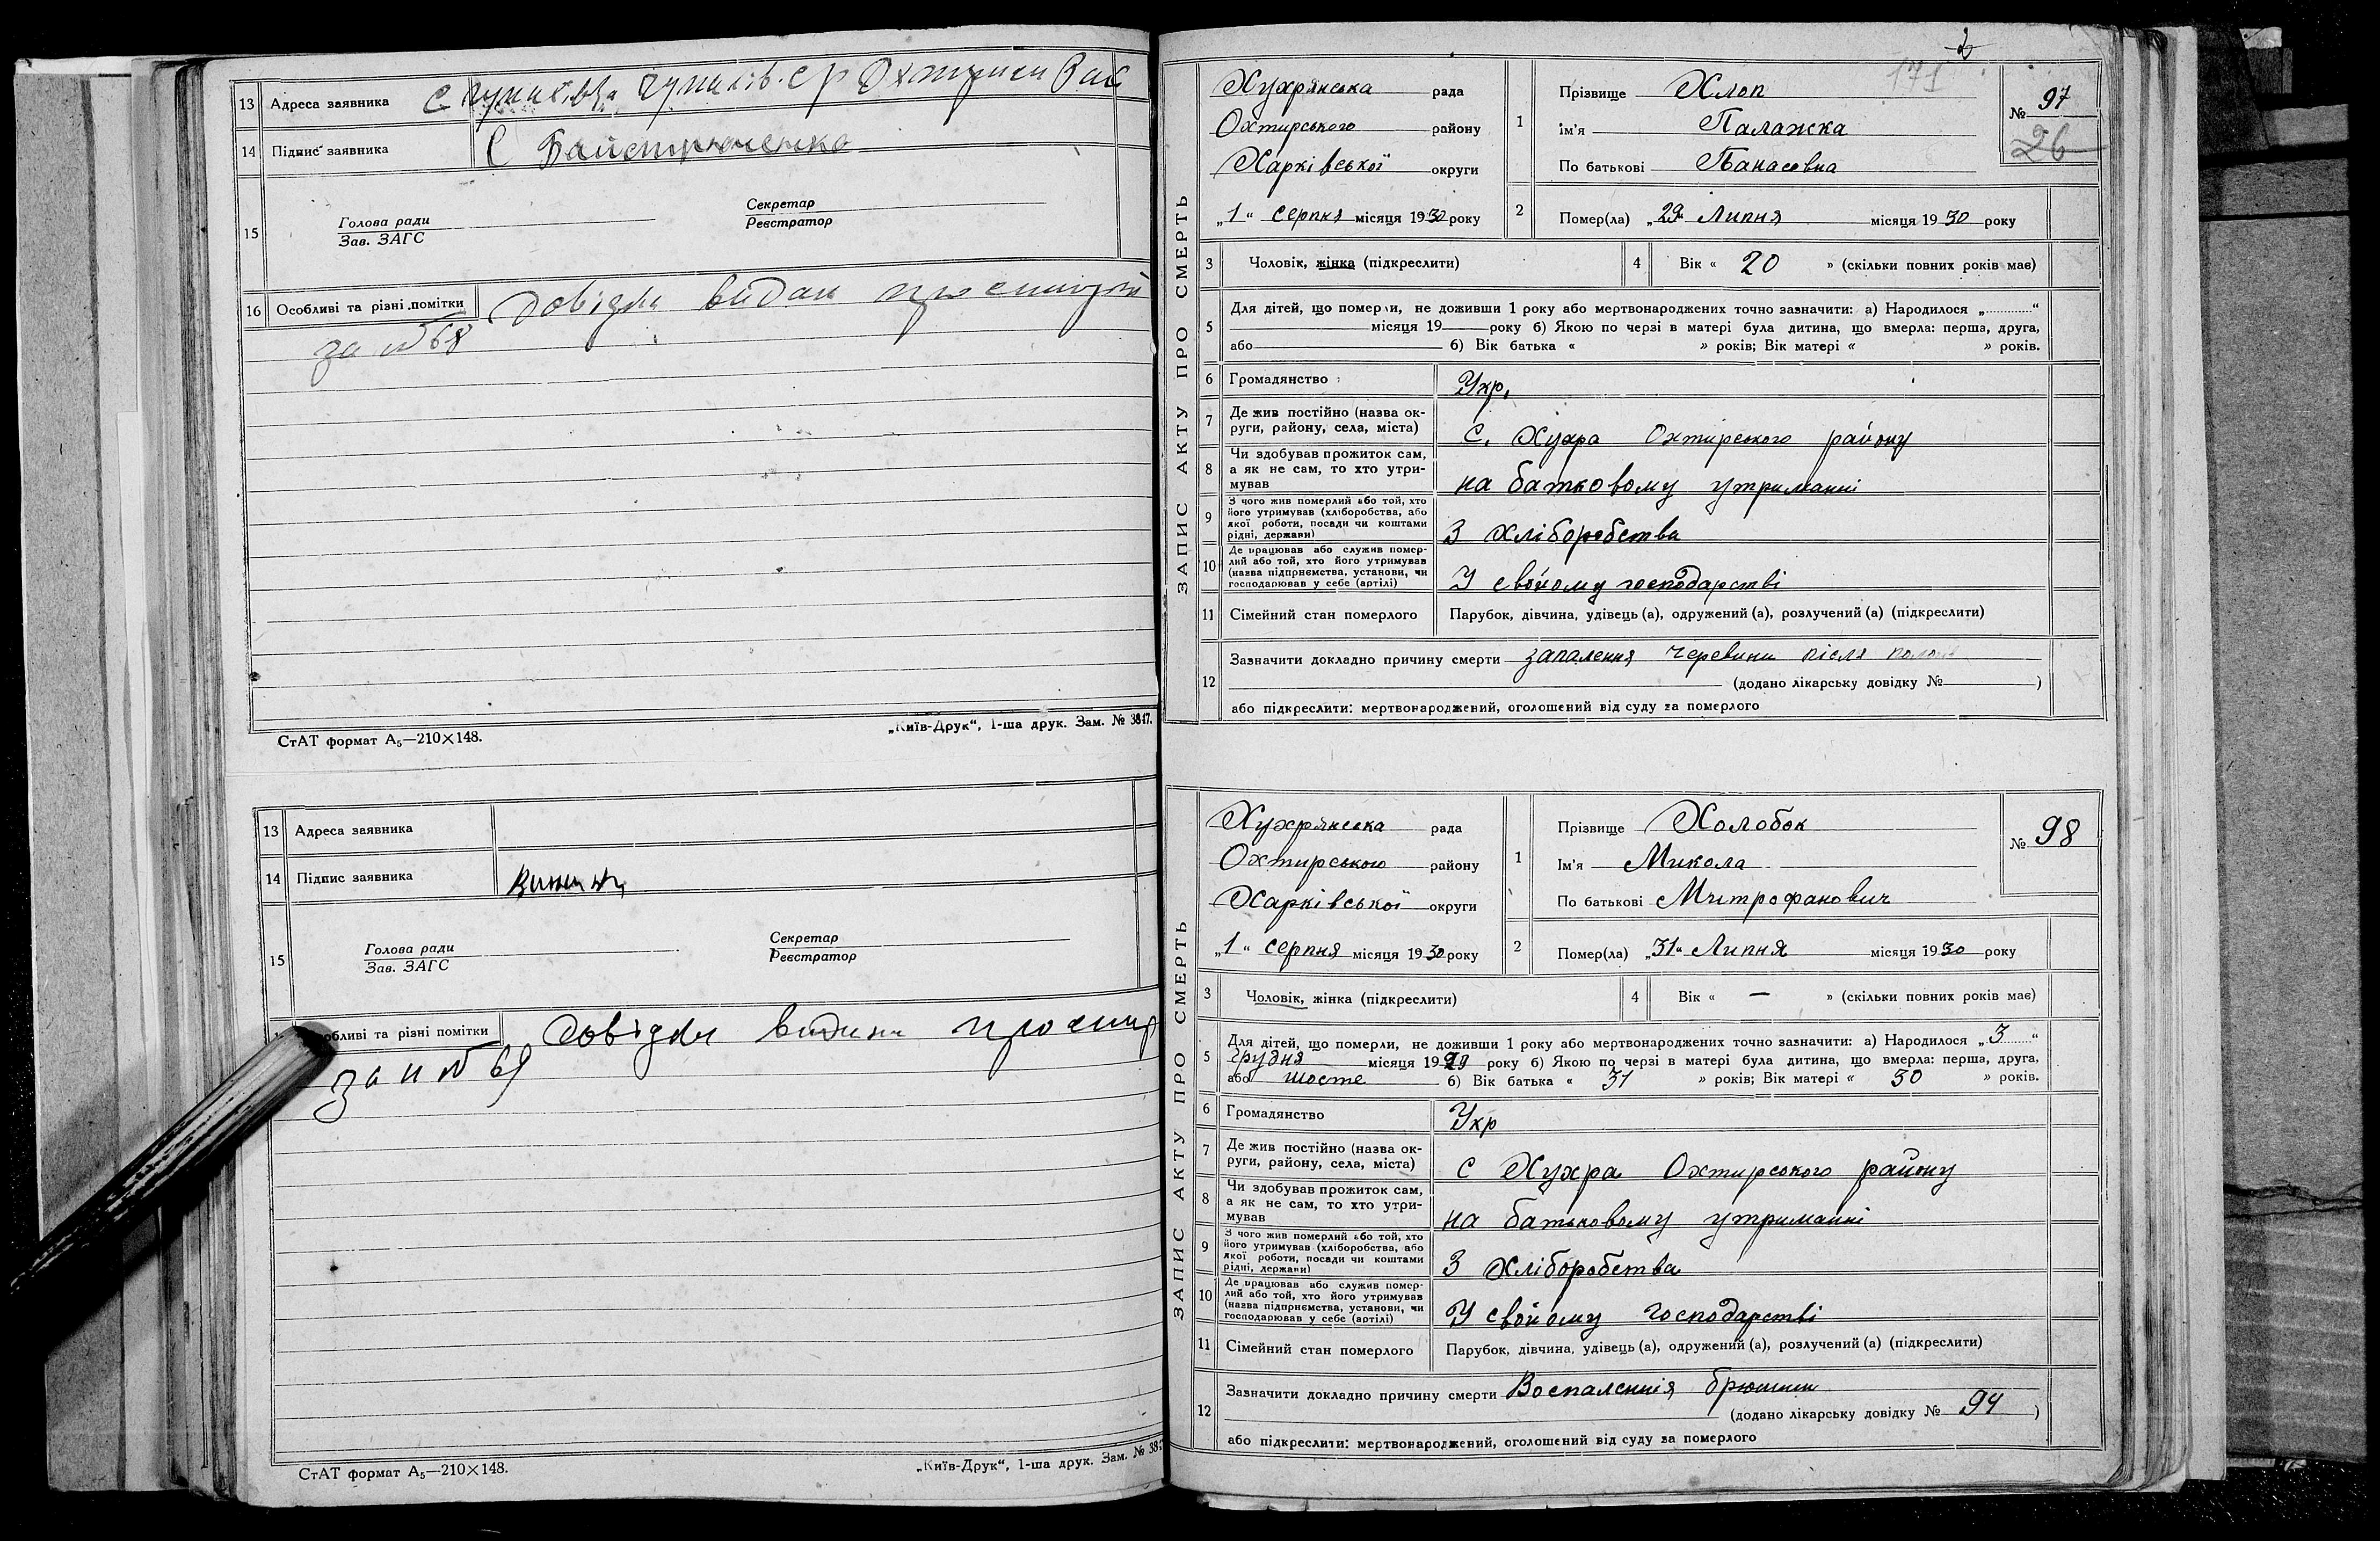 13 Адреса заявника
14 Підпис заявника С Байстрюченко
Секретар
Голова ради Реєстратор
15 Зав. ЗАГС
16 Особливі та різні помітки Довідка видан про смерть
за №68
СтАТ формат А₅—210×148. „Київ-Друк“, 1-ша друк. Зам. № 3847.
13 Адреса заявника
14 Підпис заявника
Секретар
Голова ради Реєстратор
15 Зав. ЗАГС
особливі та різні помітки Довідка видана про смер
за № 69
СтАТ формат А₅—210×148. „Київ-Друк“, 1-ша друк. Зам. № 38
171
ЗАПИС АКТУ ПРО СМЕРТЬ
Хухрянська рада
Охтирського району
Харківської округи
„1“ серпня місяця 1930 року
1 Прізвище Хлоп
ім'я Палажка
По батькові Панасовна
№ 97
26
2 Помер(ла) „29“ Липня місяця 1930 року
3 Чоловік, жінка (підкреслити) 4 Вік « 20 » (скільки повних років має)
Для дітей, що померли, не доживши 1 року або мертвонароджених точно зазначити: а) Народилося „............“
5 місяця 19 року б) Якою по черзі в матері була дитина, що вмерла: перша, друга,
або б) Вік батька « » років; Вік матері « » років.
6 Громадянство Укр.
7 Де жив постійно (назва ок-
руги, району, села, міста) С. Хухра Охтирського району
Чи здобував прожиток сам,
8 а як не сам, то хто утри-
мував на батьковому утриманні
З чого жив померлий або той, хто
9 його утримував (хліборобства, або
якої роботи, посади чи коштами
рідні, держави) З хліборобства
Де працював або служив помер-
10 лий або той, хто його утримував
(назва підприємства, установи, чи
господарював у себе (артілі) У свойому господарстві
11 Сімейний стан померлого Парубок, дівчина, удівець (а), одружений (а), розлучений (а) (підкреслити)
Зазначити докладно причину смерти запалення черевини після
12 (додано лікарську довідку № )
або підкреслити: мертвонароджений, оголошений від суду за померлого
ЗАПИС АКТУ ПРО СМЕРТЬ
Хухрянська рада
Охтирського району
Харківської округи
„1“ серпня місяця 1930 року
1 Прізвище Холобок
Ім'я Микола
По батькові Митрофанович
№ 98
2 Помер(ла) „31“ Липня місяця 1930 року
3 Чоловік, жінка (підкреслити) 4 Вік « — » (скільки повних років має)
Для дітей, що померли, не доживши 1 року або мертвонароджених точно зазначити: а) Народилося „3......“
5 грудня місяця 1929 року б) Якою по черзі в матері була дитина, що вмерла: перша, друга,
або шосте б) Вік батька « 31 » років; Вік матері « 30 » років.
6 Громадянство Укр
7 Де жив постійно (назва ок-
руги, району, села, міста) С Хухра Охтирського району
Чи здобував прожиток сам,
8 а як не сам, то хто утри-
мував на батьковому утриманні
З чого жив померлий або той, хто
9 його утримував (хліборобства, або
якої роботи, посади чи коштами
рідні, держави) З хліборобства
Де працював або служив помер-
10 лий або той, хто його утримував
(назва підприємства, установи, чи
господарював у себе (артілі) У свойому господарстві
11 Сімейний стан померлого Парубок, дівчина, удівець (а), одружений (а), розлучений (а) (підкреслити)
Зазначити докладно причину смерти Воспаленнія брюшини
12 (додано лікарську довідку № 94 )
або підкреслити: мертвонароджений, оголошений від суду за померлого